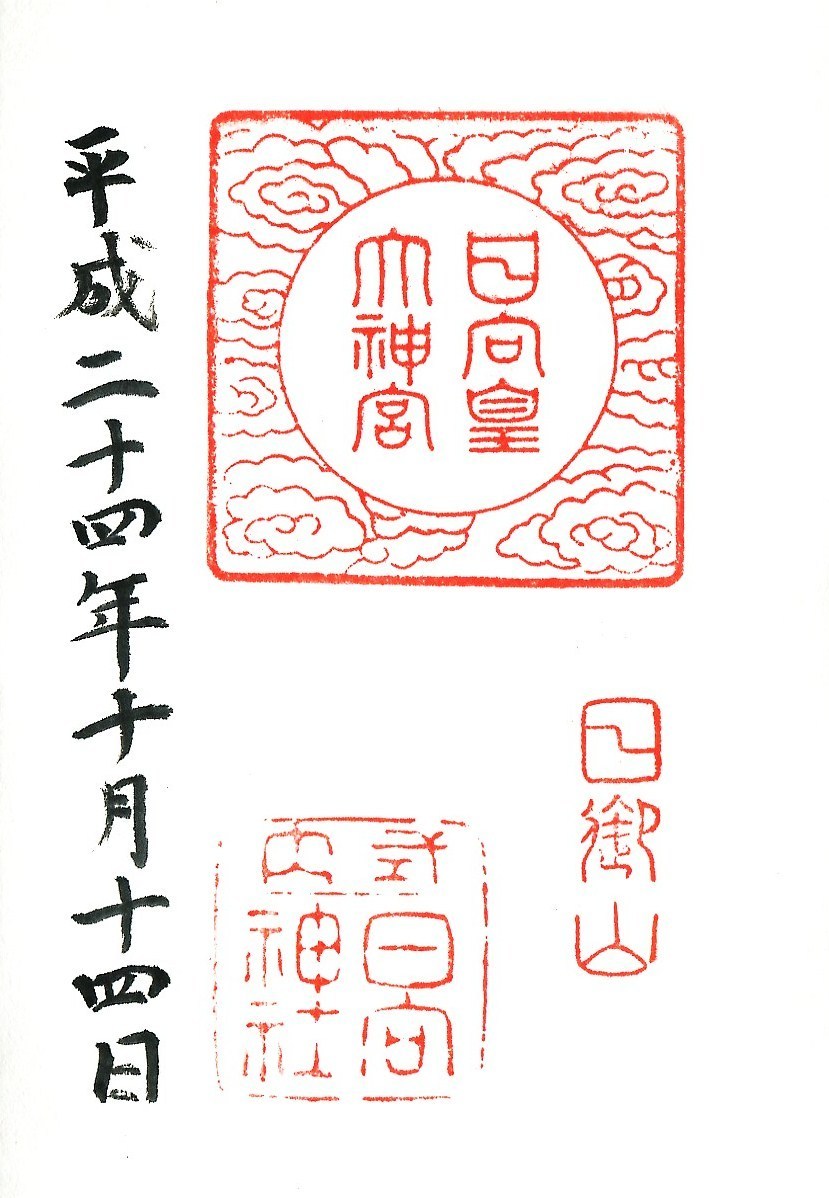 日向皇
大神宮
日御山
式内
日向
神社
平成二十四年十月十四日